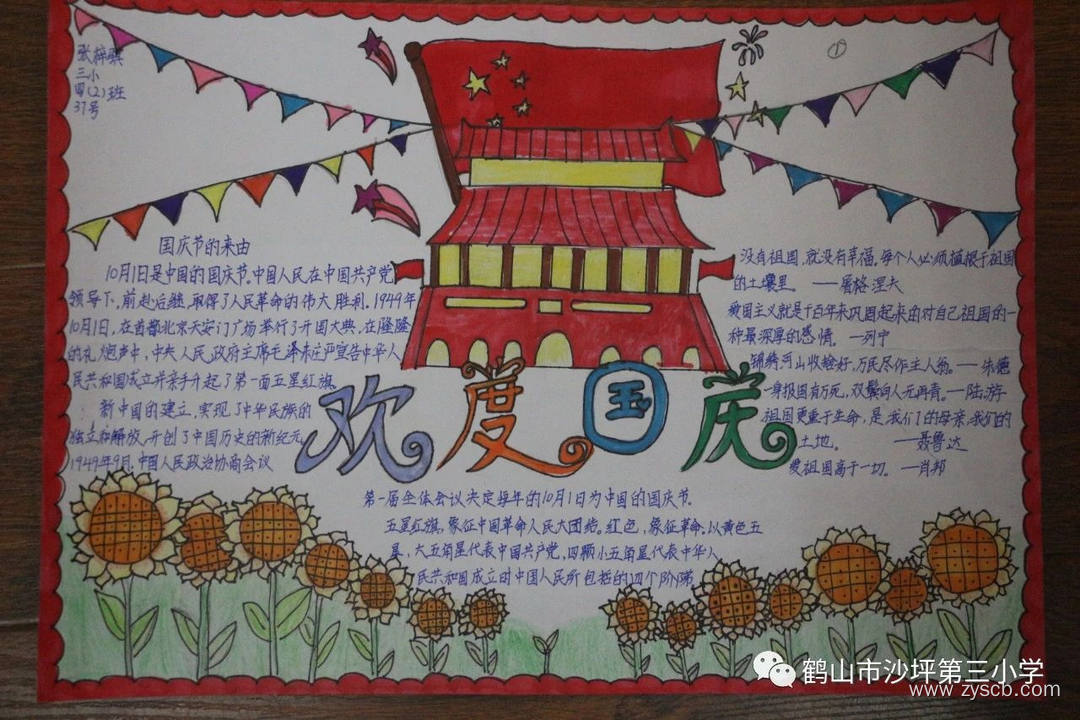 张梓骐
三小
四(2)班
37号
①
国庆节的来由
10月1日是中国的国庆节。中国人民在中国共产党
领导下,前赴后继,取得了人民革命的伟大胜利。1949年
10月1日,在首都北京天安门广场举行了开国大典,在隆隆
的礼炮声中,中央人民政府主席毛泽东庄严宣告中华人
民共和国成立并亲手升起了第一面五星红旗。
新中国的建立,实现了中华民族的
独立和解放,开创了中国历史的新纪元
1949年9月,中国人民政治协商会议
第一届全体会议决定每年的10月1日为中国的国庆节。
五星红旗,象征中国革命人民大团结。红色,象征革命。以黄色五
星,大五角星代表中国共产党,四颗小五角星代表中华人
民共和国成立时中国人民所包括的四个阶层
没有祖国,就没有幸福。每个人必须植根于祖国
的土壤里。——屠格涅夫
爱国主义就是千百年来巩固起来的对自己祖国的一
种最深厚的感情。——列宁
锦绣河山收拾好,万民尽作主人翁。——朱德
一身报国有万死,双鬓向人无再青。——陆游
祖国更重于生命,是我们的母亲,我们的
土地。——聂鲁达
爱祖国高于一切。——肖邦
欢度国庆
鹤山市沙坪第三小学
www.zyscb.com